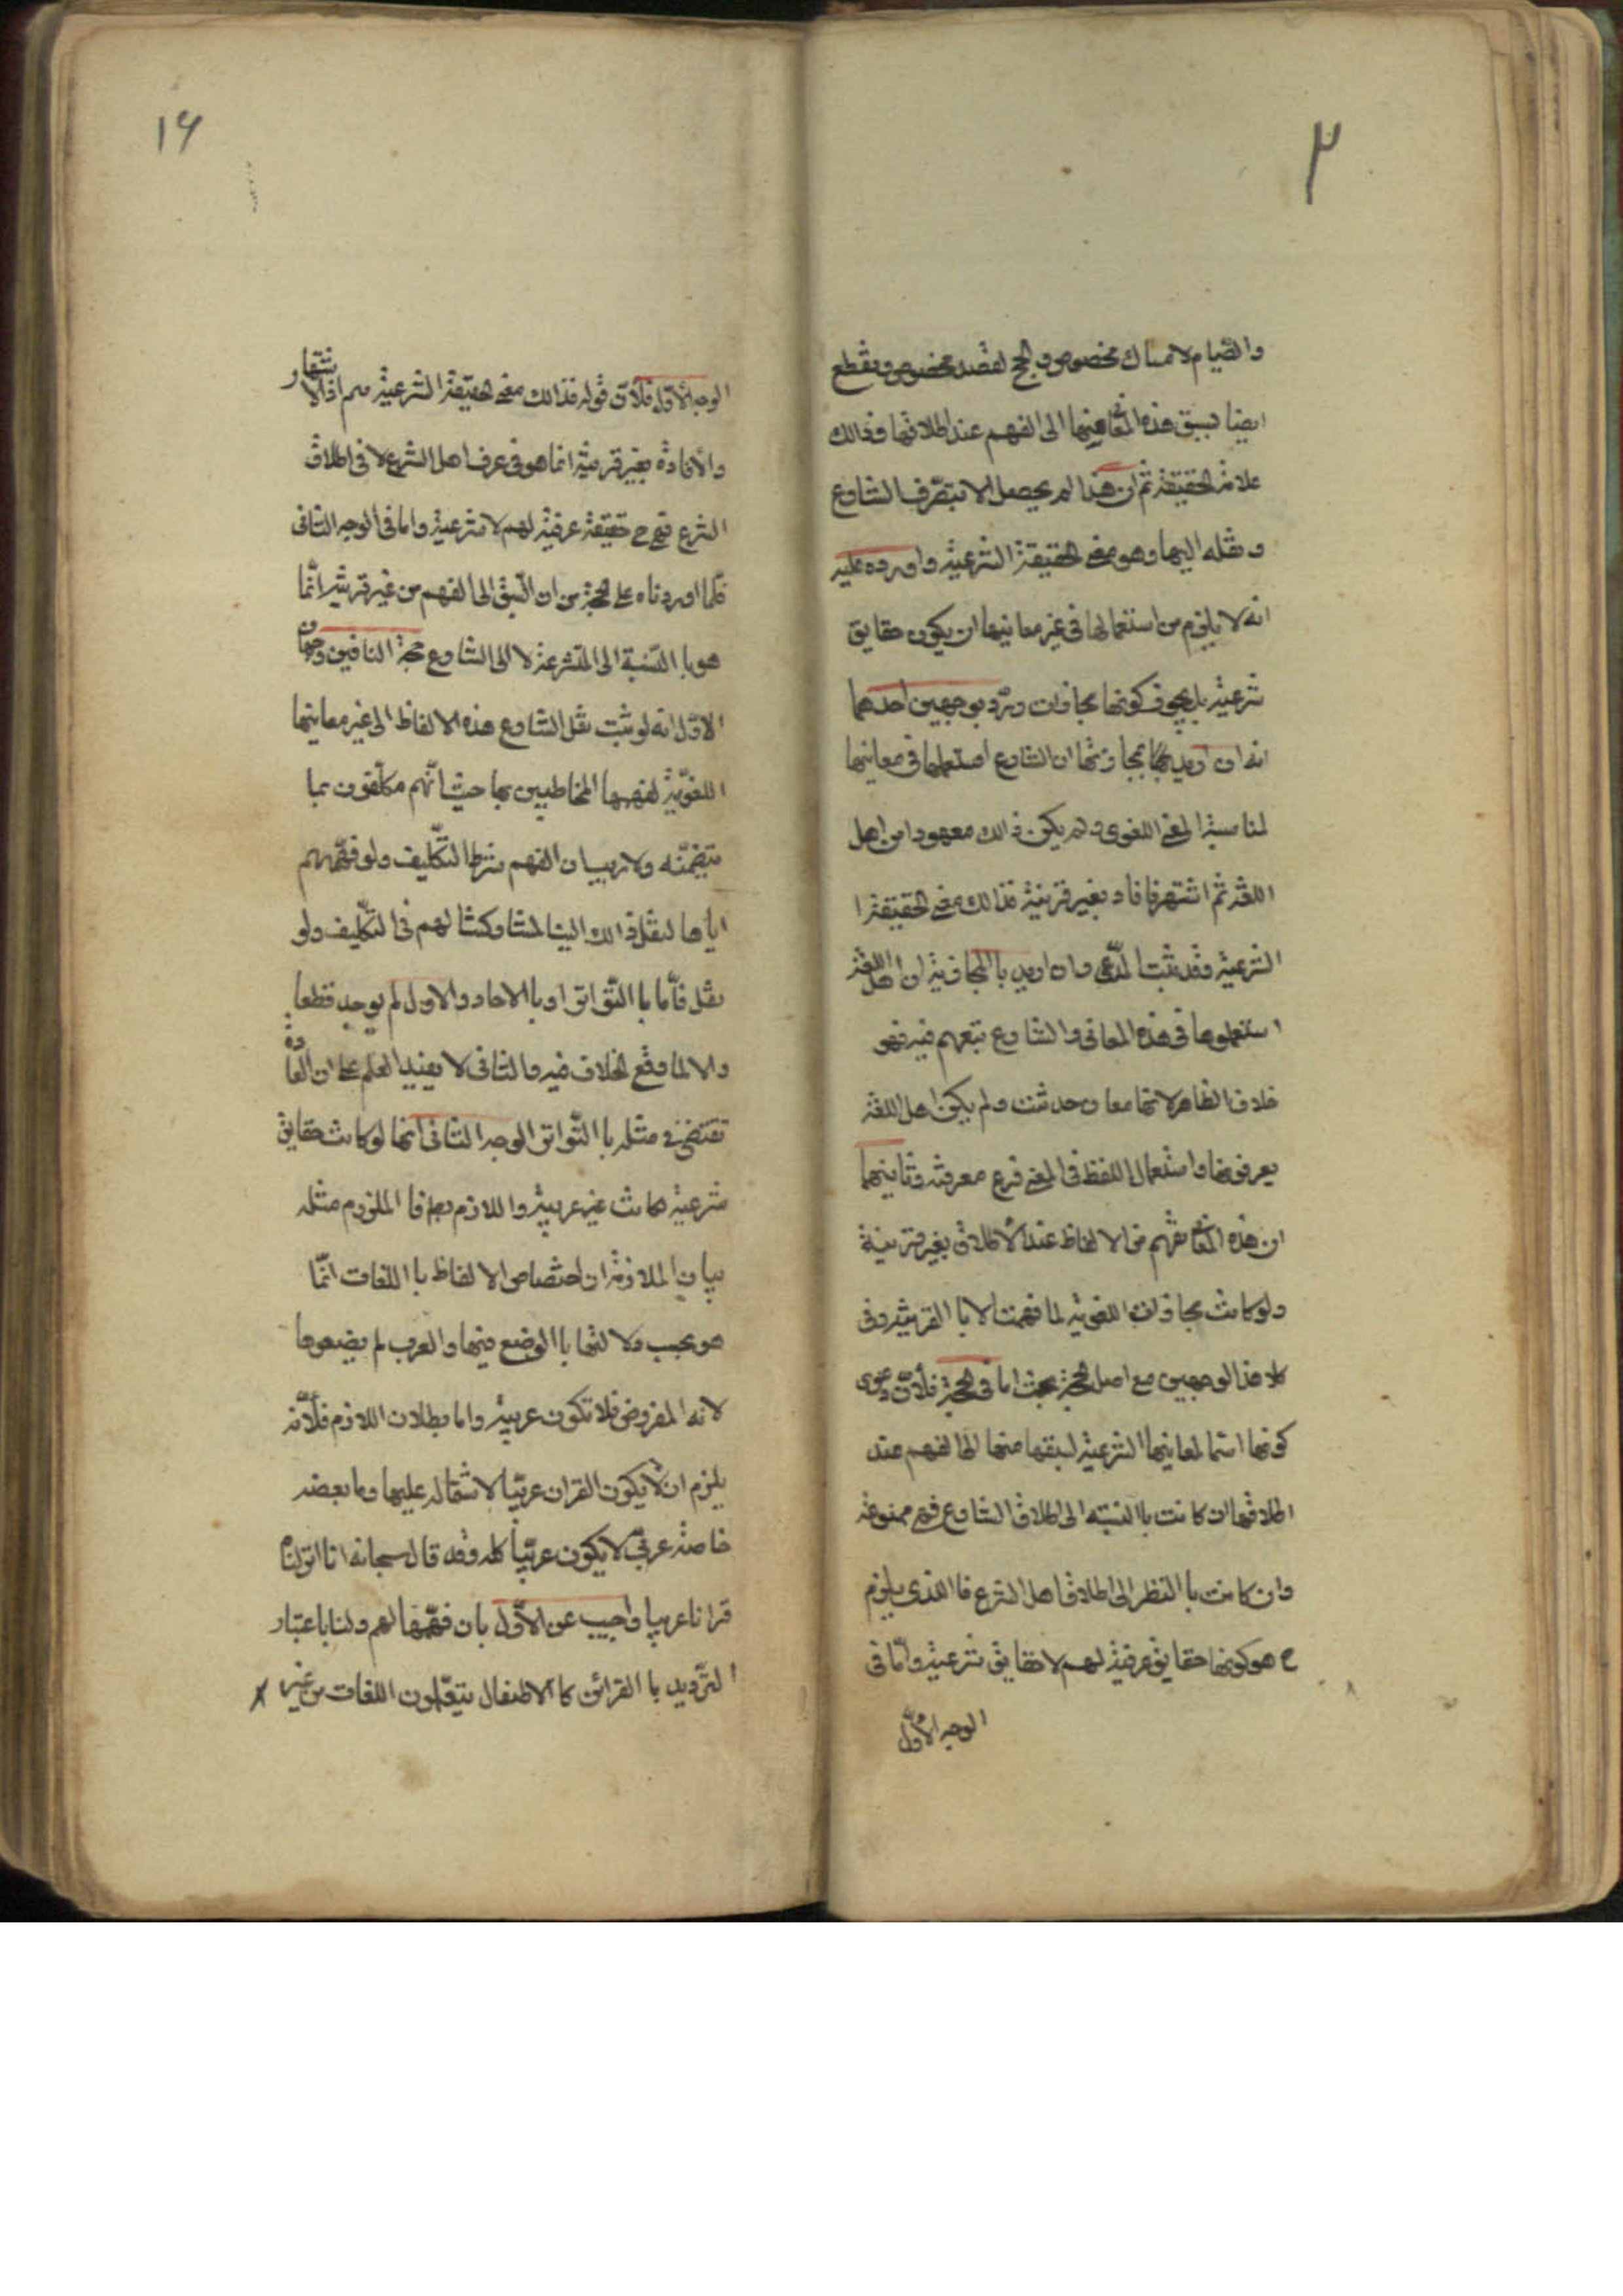 ٣
والصّيام لامساك مخصوص والحج لقصد مخصوص ونقطع
ايضا بسبق هذه المعانى منها الى الفهم عند اطلاقها وذالك
علامة الحقيقة ثم ان هذا لم يحصل الا بتصرف الشارع
ونقله اليها وهو معنى الحقيقة الشرعية واورد عليه
انه لا يلزم من استعمالها فى غير معانيها ان يكون حقايق
شرعية بل يجوز كونها مجازات ورد بوجهين احدهما
انه ان اريد بمجازيتها ان الشارع استعملها فى معانيها
لمناسبة المعنى اللغوى ولم يكن ذالك معهودا من اهل
اللغة ثم اشتهر فافاد بغير قرينة فذالك معنى الحقيقة ا
الشرعية وقد ثبت المدّعى وان اريد باالمجازية ان اهل اللغة
استعملوها فى هذه المعانى والشارع تبعهم فيه فهو
خلاف الظاهر لانها معان حدثت ولم يكن اهل اللغة
يعرفونها واستعمال اللفظ فى المعنى فرع معرفته وثانيهما
ان هذه المعانى تفهم من الالفاظ عند الأطلاق بغير قرينة
ولو كانت مجازات اللغوية لما فهمت الا باالقرينة وفى
كلا هذا الوجهين مع اصل الحجة بحث اما فى الحجة فلأن دعوى
كونها اسما لمعانيها الشرعية لسبقها منها الى الفهم عند
اطلاقها ان كانت باالنسبة الى اطلاق الشارع فهى ممنوعة
وان كانت باالنظر الى اطلاق اهل الشرع فاالذى يلزم
ح هو كونها حقايق عرفية لهم لا حقايق شرعية وامّا فى
الوجه الأوّل
١٦
الوجه الأوّل فلأنّ قوله فذالك معنى الحقيقة الشرعية مم اذ الاشتهار
والأفادة بغير قرينة انما هو فى عرف اهل الشرع لا فى اطلاق
الشرع فهى ح حقيقة عرفية لهم لا شرعية واما فى الوجه الثانى
فلما اوردناه على الحجة من ان السّبق الى الفهم من غير قرينة انّما
هو باالنّسبة الى المتشرعة لا الى الشارع حجة النافين وجهان
الاوّل انه لو ثبت نقل الشارع هذه الالفاظ الى غير معانيها
اللغويّة لفهمها المخاطبين بها حيث انّهم مكلّفون بما
يتضمّنه ولا ريب ان الفهم شرط التكليف ولو فهّمهم
اياها لنقل ذالك الينا لمشاركتنا لهم فى التكليف ولو
نقل فأمّا باالتّواتر او باالاحاد والاول لم يوجد قطعا
والا لما وقع الخلاف فيه والثانى لا يفيد العلم على ان العادة
تقتضى فى مثله باالتّواتر الوجه الثانى انها لو كانت حقايق
شرعية لكانت غير عربيّة واللازم بط فا الملزوم مثله
بيان الملازمة ان اختصاص الالفاظ باا للغات انّما
هو بحسب دلالتها باالوضع فيها والعرب لم يضعوها
لانه المفروض فلا تكون عربية واما بطلان اللازم فلأنّه
يلزم ان لا يكون القران عربيّا لاشتماله عليها وما بعضه
خاصة عربى لا يكون عربيّا كله وقد قال سبحانه انا انزلناه
قرانا عربيا واجيب عن الأوّل بان فهّمها لهم ولنا باعتبار
التّرديد باالقرائن كاالاطفال يتعلمون اللغات من غير